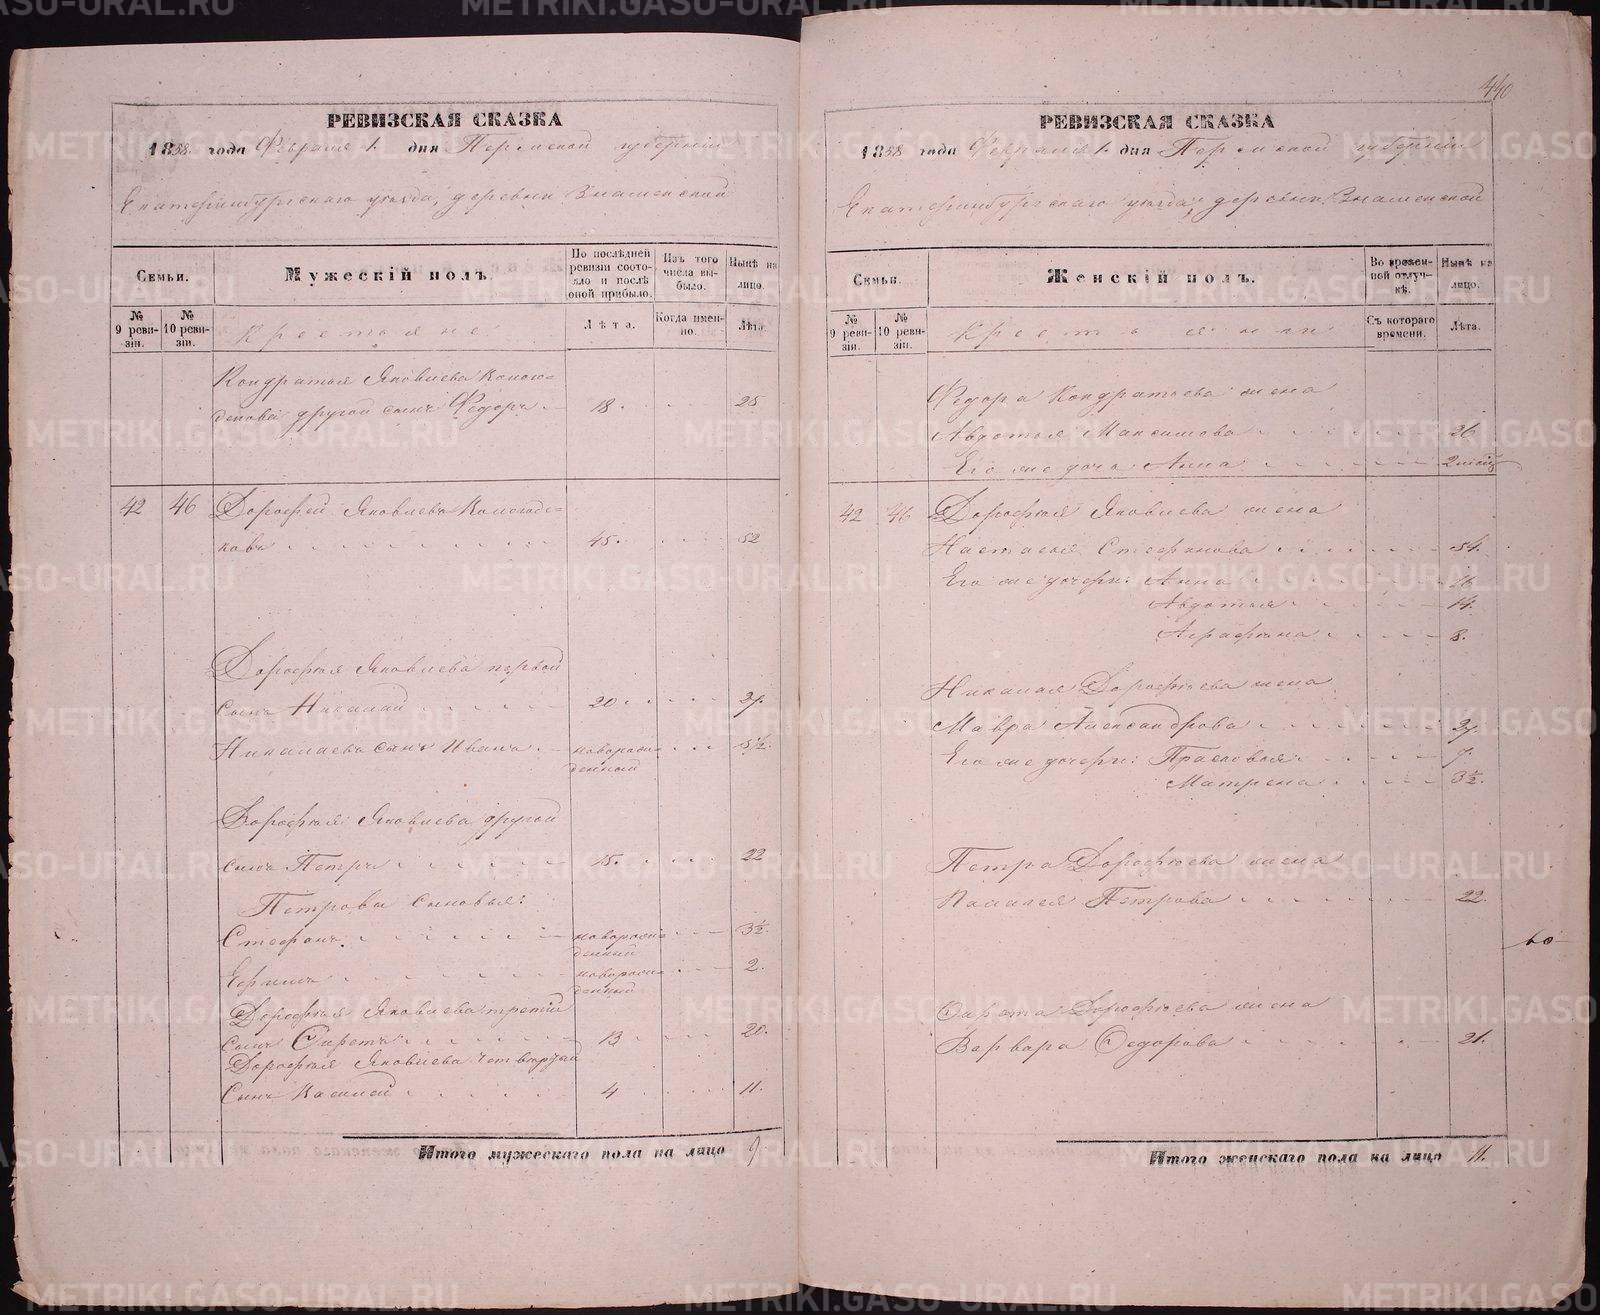 440
РЕВИЗСКАЯ СКАЗКА
1858 года Февраля 1 дня Пермской губернии
Екатеринбургскаго уезда, деревни Знаменской
Семьи.
Мужескій полъ.
По послѣдней ревизіи состояло и послѣ оной прибыло.
Изъ того числа выбыло.
Нынѣ на лицо.
№ 9 ревизіи.
№ 10 ревизіи.
Крестьяне
Лѣта.
Когда именно.
Лѣта.
Кондратья Яковлева
другой сынъ Федоръ 18. 25
42 46 Дорофей Яковлевъ
ковъ 45. 52
Дорофея Яковлева первой
сынъ Николай 20 27.
Николаевъ сынъ Иванъ новорожденный 5½.
Дорофея Яковлева другой
сынъ Петръ 15. 22
Петрова сыновья:
Стефанъ новорожденный 3½.
Ефимъ новорожденный 2.
Дорофея Яковлева третій
сынъ 13 20.
Дорофея Яковлева четвертой
сынъ Василей 4 11.
Итого мужескаго пола на лицо 9
РЕВИЗСКАЯ СКАЗКА
1858 года Февраля 1 дня Пермской губерніи
Екатеринбургскаго уезда, деревни Знаменской
Семьи.
Женскій полъ.
Во временной отлучкѣ.
Нынѣ на лицо.
№ 9 ревизіи.
№ 10 ревизіи.
Крестьянки
Съ котораго времени.
Лѣта.
Федора Кондратьева жена
Авдотья Максимова 26
Его же дочь Анна 2 месяц
42 46 Дорофея Яковлева жена
Настасья Стефанова 54.
Его же дочери: Анна 16
Авдотья 14.
Аграфена 8.
Николая Дорофеева жена
Мавра Александрова 27.
Его же дочери: Прасковья 7.
Матрена 3½.
Петра Дорофеева жена
Палагея Петрова 22.
Дорофеева жена
Варвара Федорова 21.
Итого женскаго пола на лицо 11.
METRIKI.GASO-URAL.RU